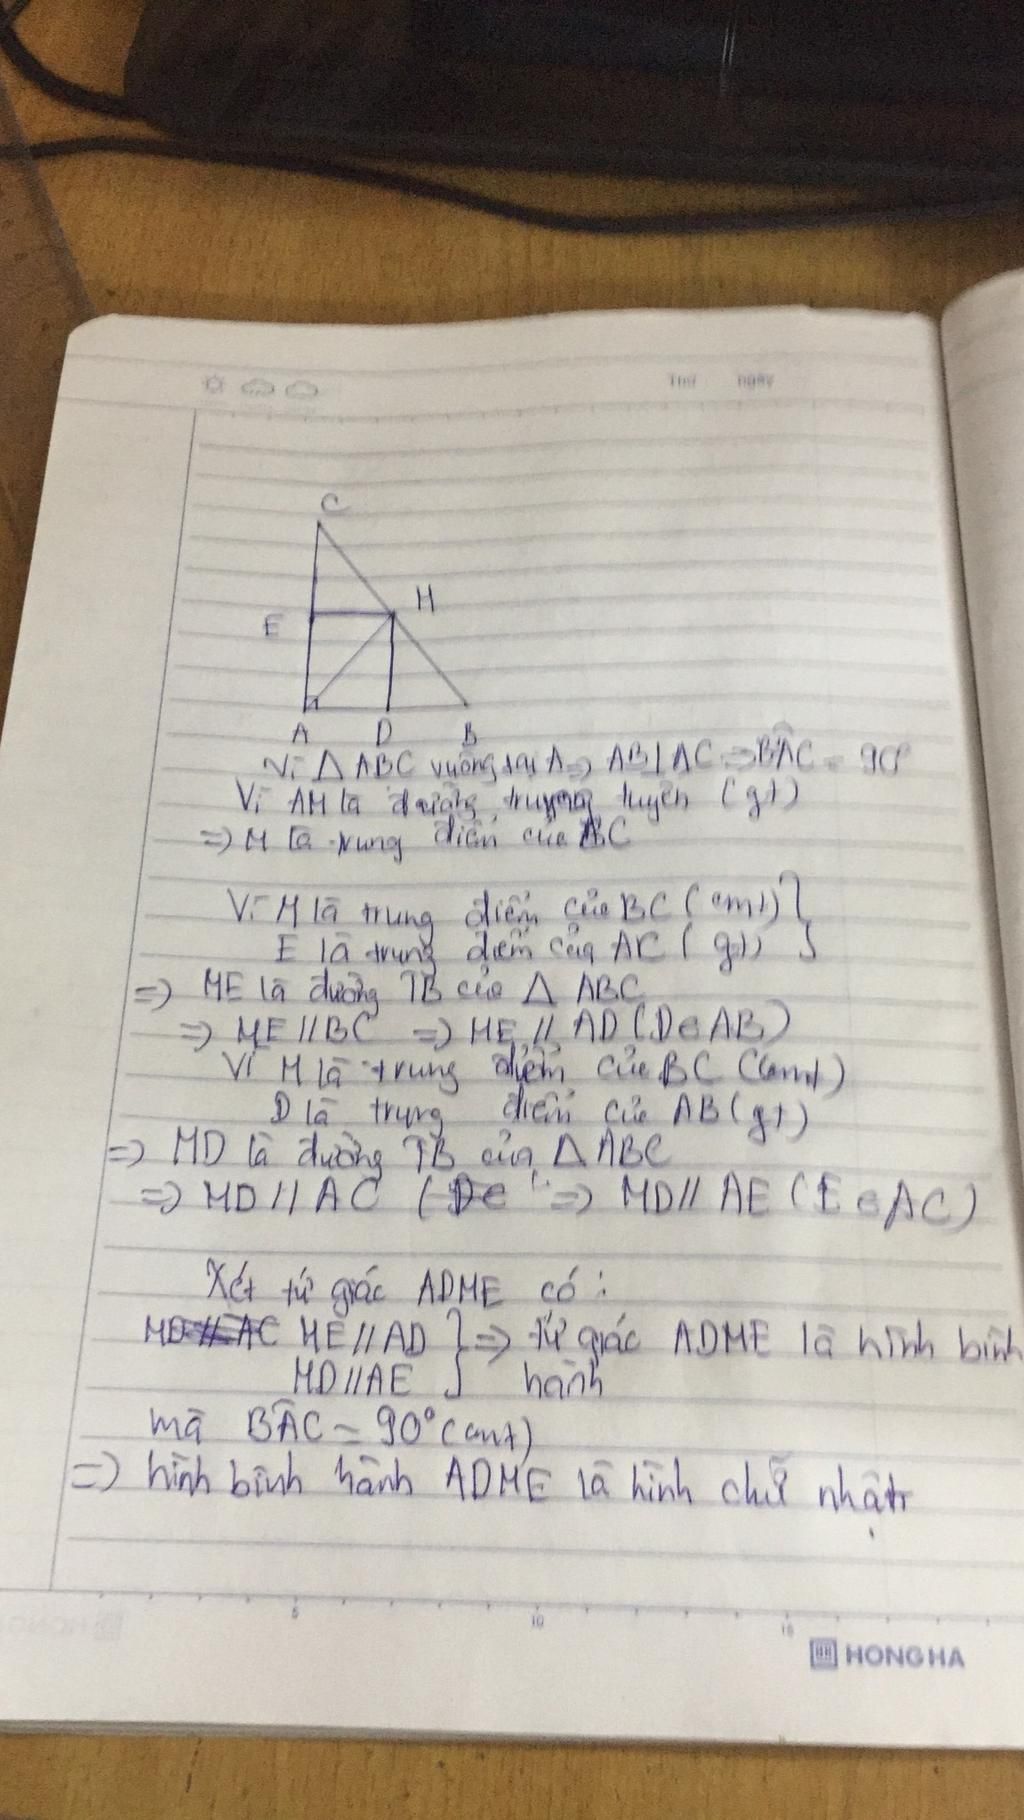 Thứ ngày
C
E
M
A D B
Vì △ ABC vuông tại A => AB⊥AC => BÂC = 90°
Vì AM là đường trung tuyến (gt)
=> M là trung điểm của BC
Vì M là trung điểm của BC (cmt)
E là trung điểm của AC (gt)
=> ME là đường TB của △ ABC
=> ME // BC => ME // AD (D∈AB)
Vì M là trung điểm của BC (cmt)
D là trung điểm của AB (gt)
=> MD là đường TB của △ ABC
=> MD // AC ( => MD // AE (E∈AC)
Xét tứ giác ADME có :
MD // AC ME // AD } => tứ giác ADME là hình bình
MD // AE } hành
mà BÂC = 90° (cmt)
=> hình bình hành ADME là hình chữ nhật
5 10 15
HONG HA